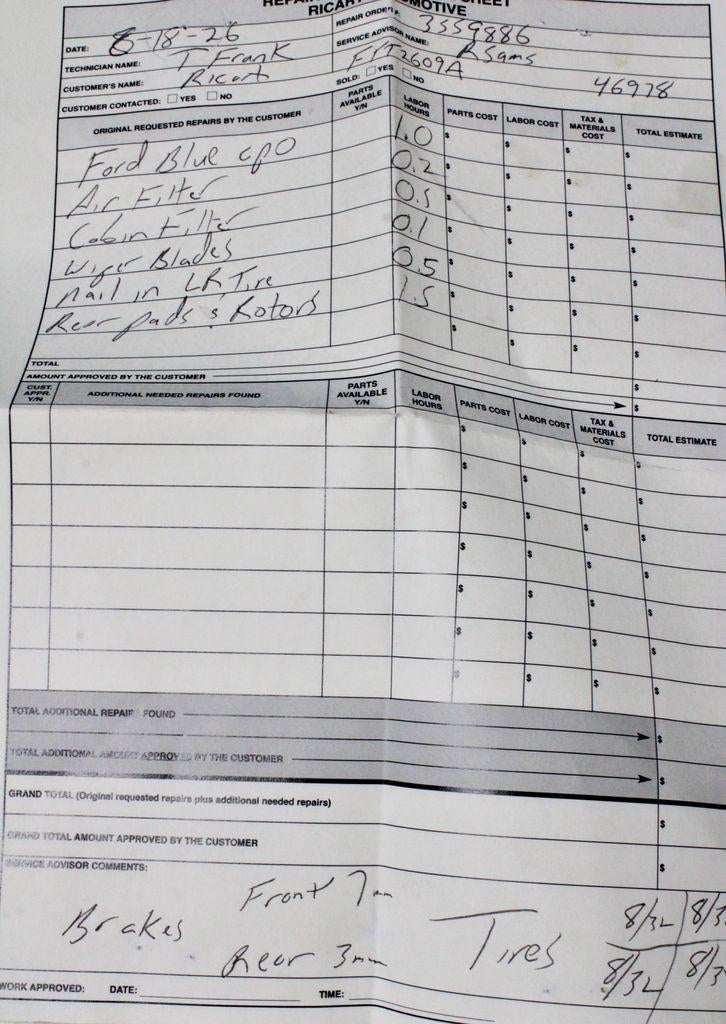 SHEET
RICART AUTOMOTIVE
DATE: 6-18-26
REPAIR ORDER #: 3559886
TECHNICIAN NAME: T Frank
SERVICE ADVISOR NAME: R Sams
CUSTOMER'S NAME: Ricart
FIT2609A
46978
CUSTOMER CONTACTED: YES NO
SOLD: YES NO
ORIGINAL REQUESTED REPAIRS BY THE CUSTOMER PARTS AVAILABLE Y/N LABOR HOURS PARTS COST LABOR COST TAX & MATERIALS COST TOTAL ESTIMATE
Ford Blue CPO 1.0 $ $ $ $
Air Filter 0.2 $ $ $ $
Cabin Filter 0.5 $ $ $ $
Wiper Blades 0.1 $ $ $ $
Nail in LR Tire 0.5 $ $ $ $
Rear pads & Rotors 1.5 $ $ $ $
$ $ $ $
TOTAL $
AMOUNT APPROVED BY THE CUSTOMER $
CUST. APPR. Y/N ADDITIONAL NEEDED REPAIRS FOUND PARTS AVAILABLE Y/N LABOR HOURS PARTS COST LABOR COST TAX & MATERIALS COST TOTAL ESTIMATE
$ $ $ $
$ $ $ $
$ $ $ $
$ $ $ $
$ $ $ $
$ $ $ $
$ $ $ $
TOTAL ADDITIONAL REPAIRS FOUND $
TOTAL ADDITIONAL AMOUNT APPROVED BY THE CUSTOMER $
GRAND TOTAL (Original requested repairs plus additional needed repairs) $
GRAND TOTAL AMOUNT APPROVED BY THE CUSTOMER $
SERVICE ADVISOR COMMENTS:
Brakes Front 7mm
Rear 3mm
Tires 8/32 8/32
8/32 8/32
WORK APPROVED: DATE: TIME: